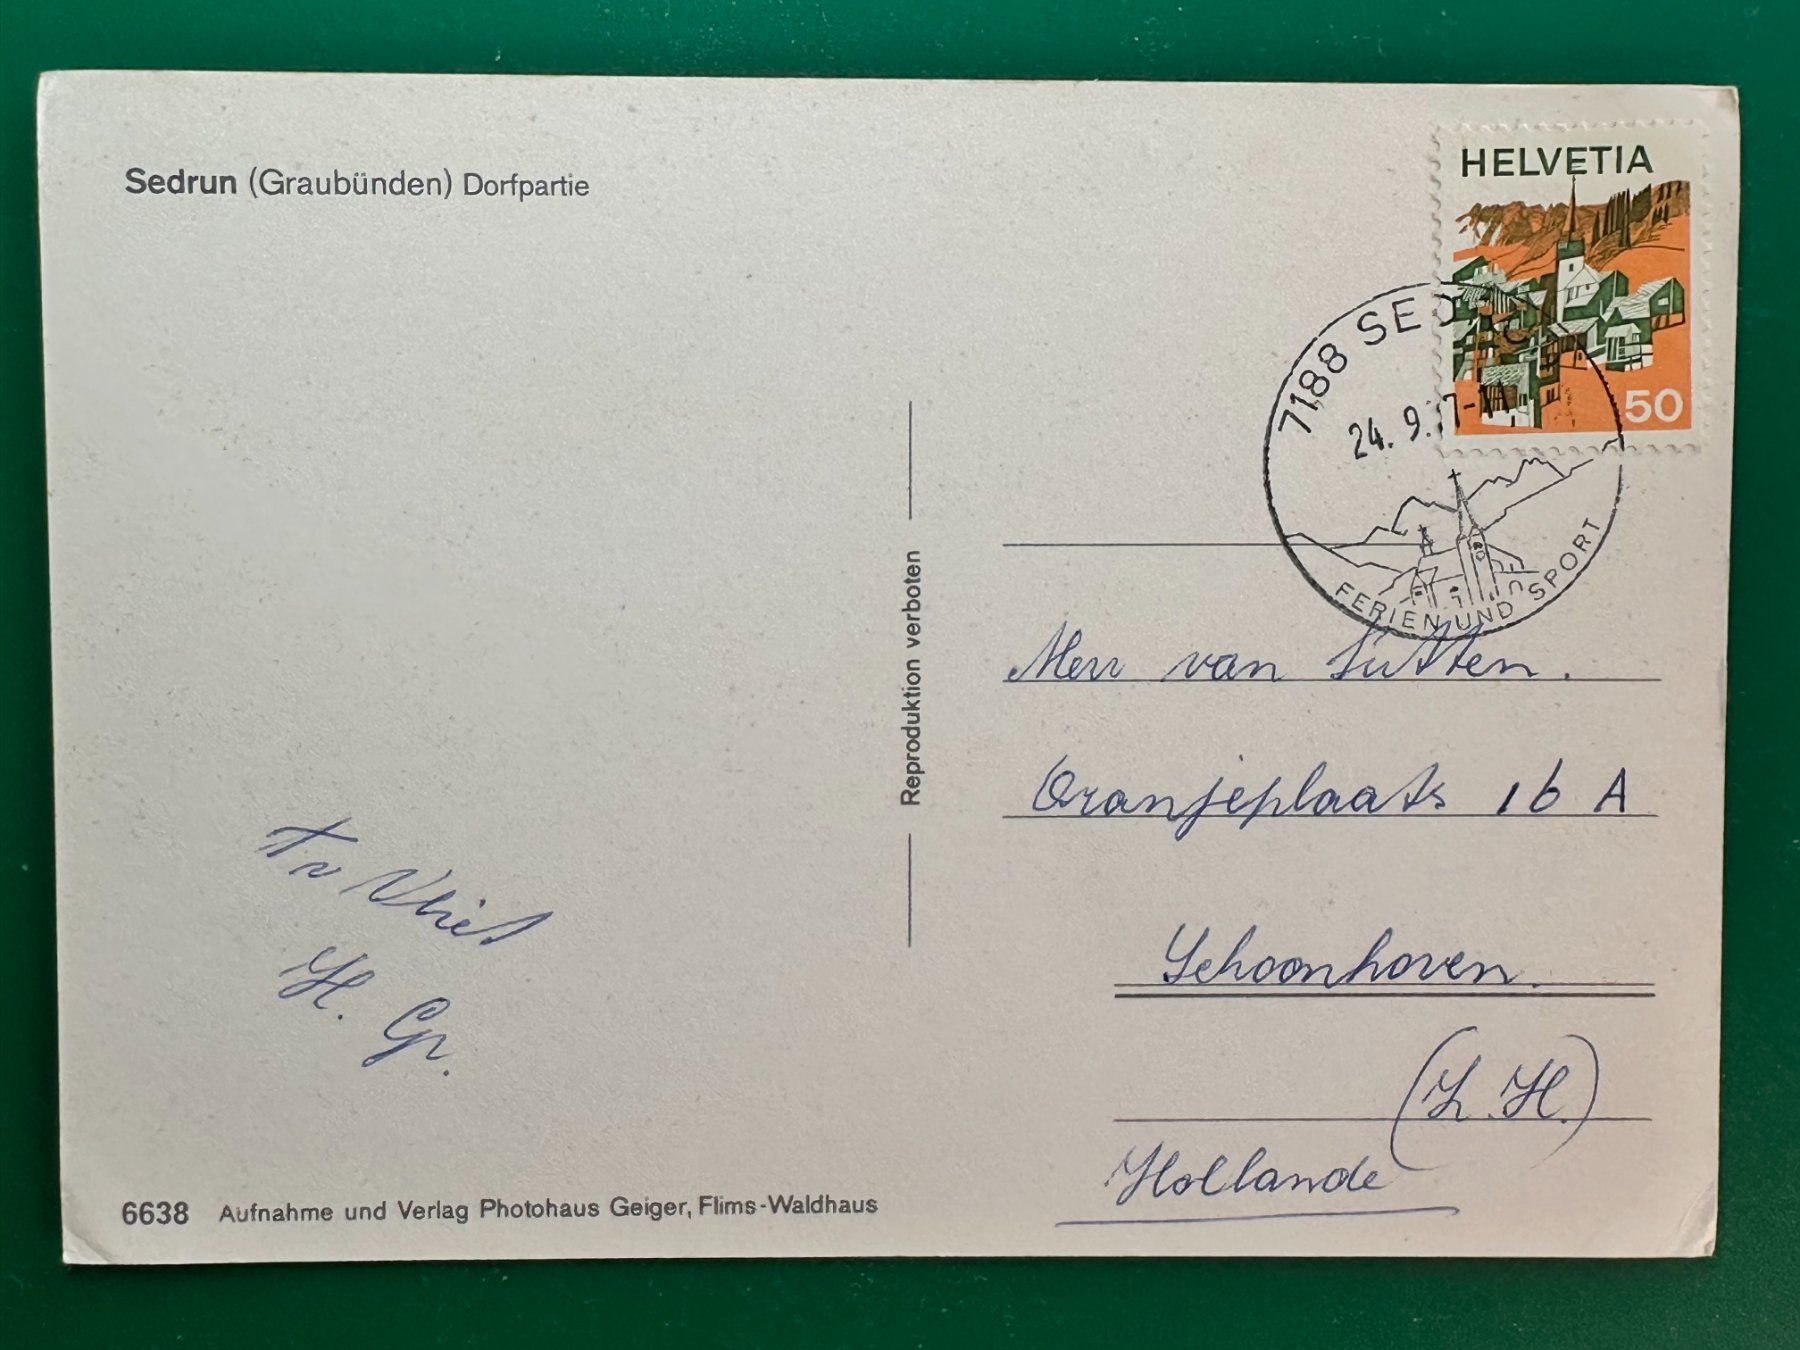 Sedrun (Graubünden) Dorfpartie
HELVETIA
50
7188 SED
24. 9. 7
FERIEN UND SPORT
Reproduktion verboten
van Sutten.
Oranjeplaats 16 A
Schoonhoven.
(Z. H.)
Hollande
Vliet
H. Gr.
6638 Aufnahme und Verlag Photohaus Geiger, Flims-Waldhaus